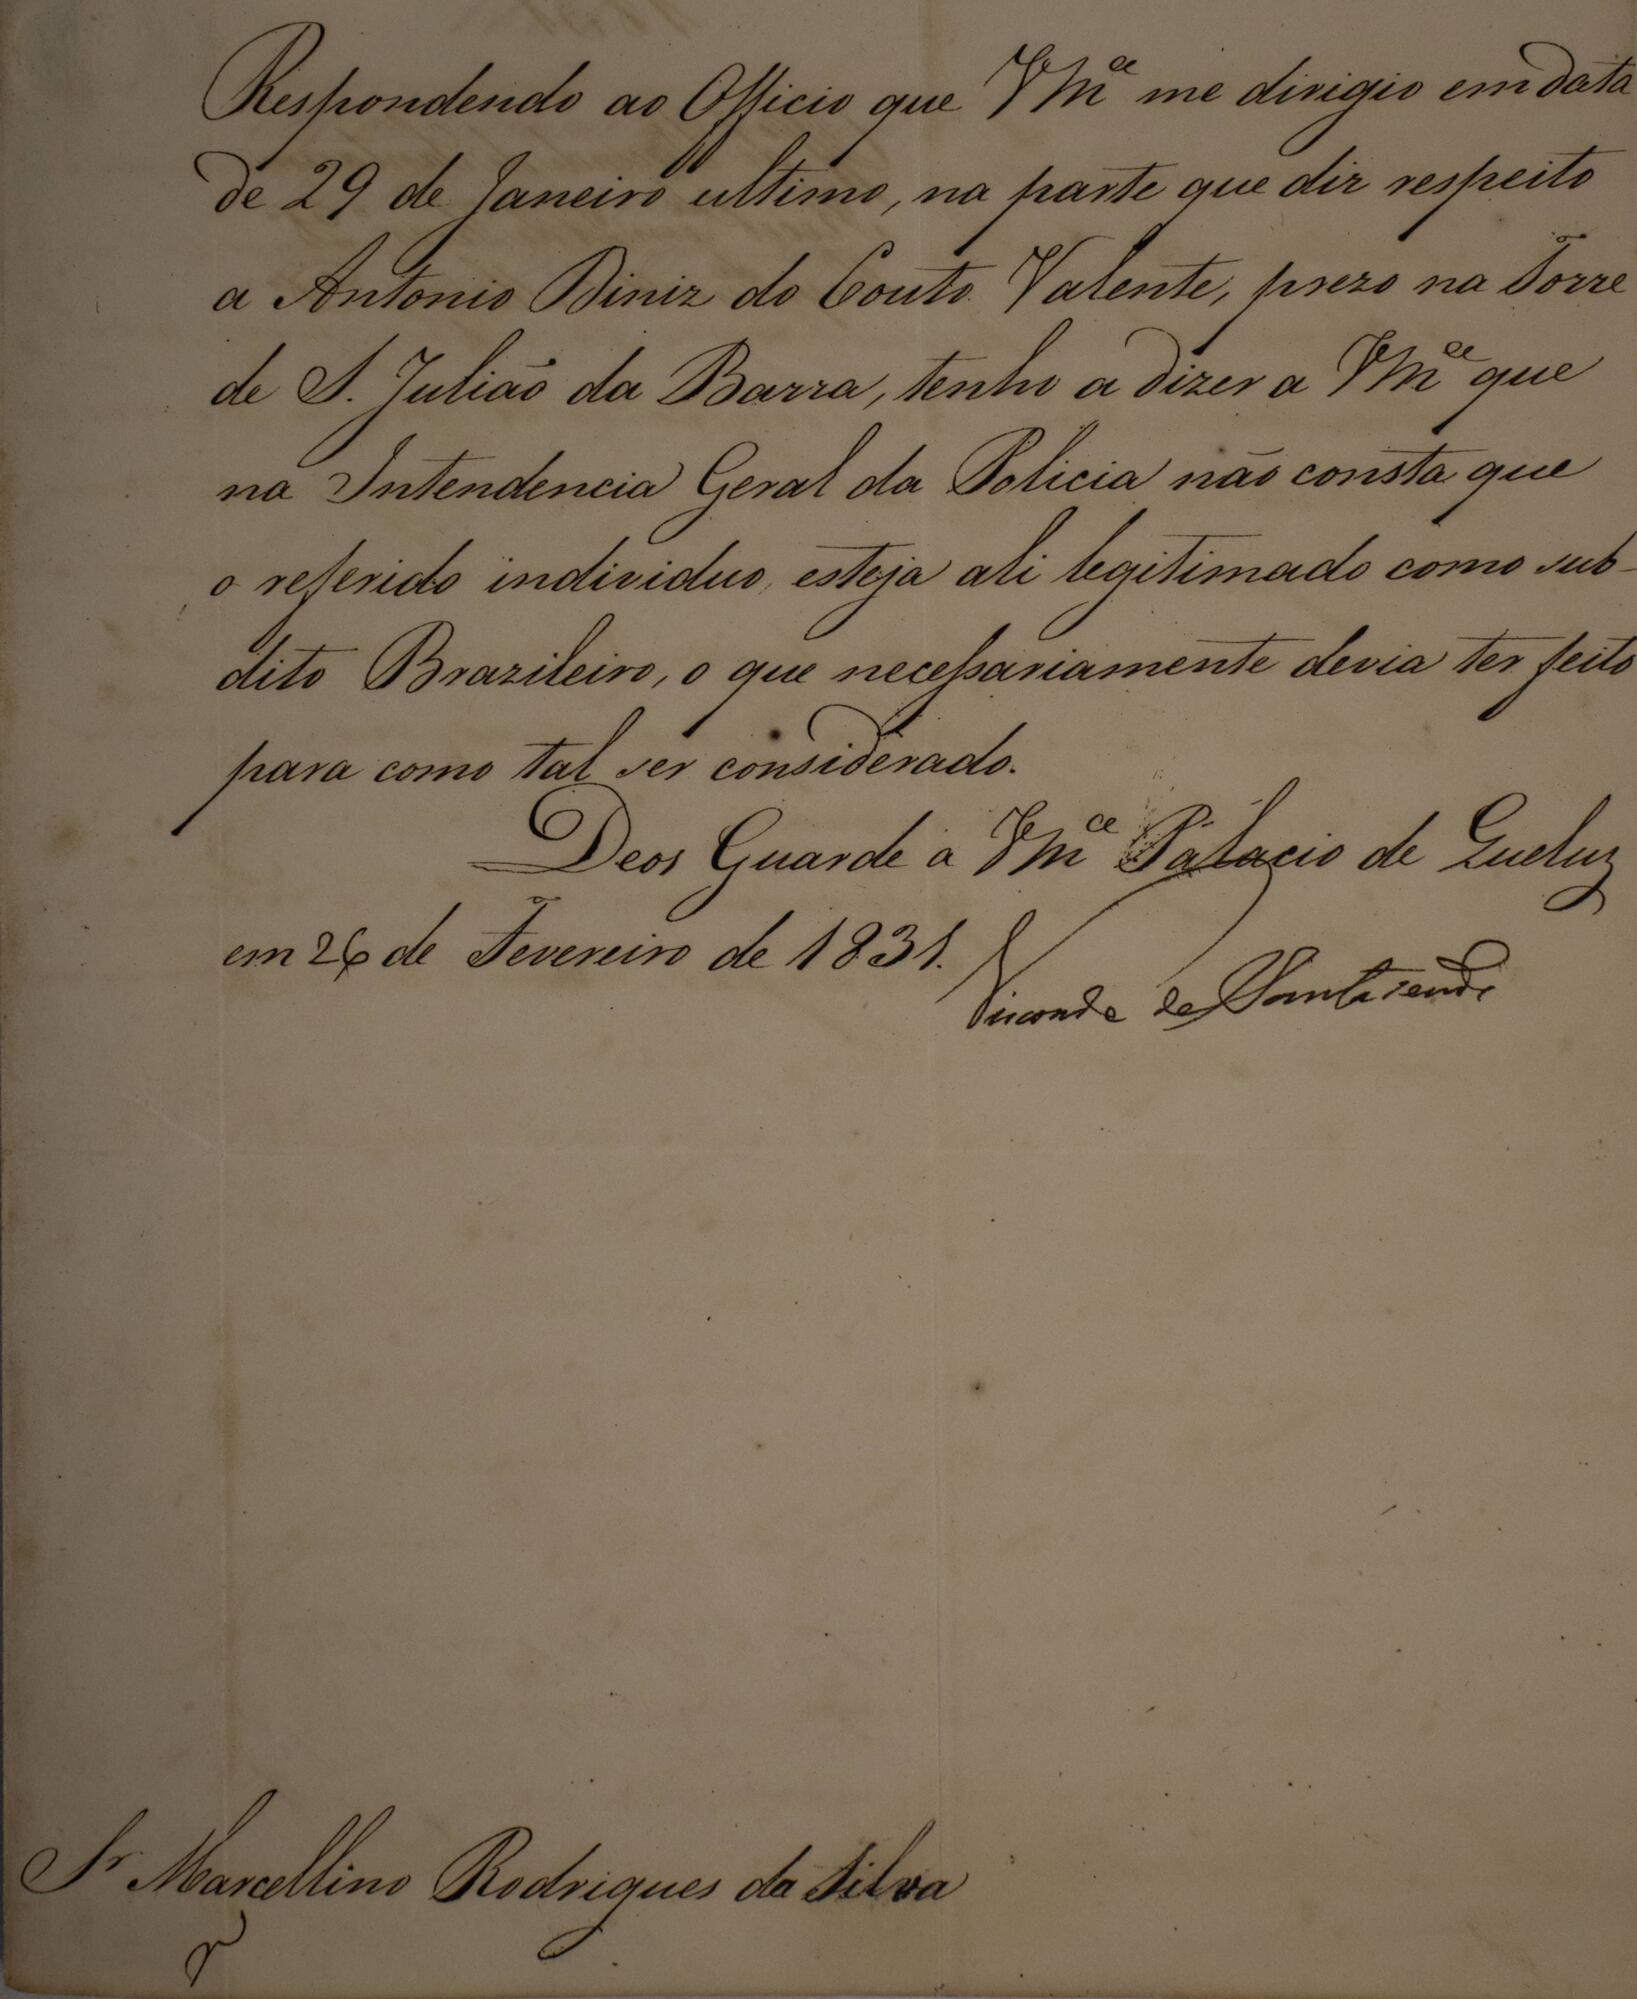 Respondendo ao Officio que VM.ce me dirigio em data
de 29 de Janeiro ultimo, na parte que diz respeito
a Antonio Diniz do Couto Valente, prezo na Torre
de S. Julião da Barra, tenho a dizer a VM.ce que
na Intendencia Geral da Policia não consta que
o referido individuo, esteja ali legitimado como sub-
dito Brazileiro, o que necessariamente devia ter feito
para como tal ser considerado.
Deos Guarde a VM.ce Palacio de Queluz
em 26 de Fevereiro de 1831.
Visconde de Santarem
Sr Marcellino Rodrigues da Silva